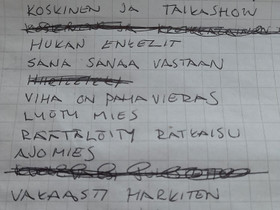 KOSKINEN JA TAIKASHOW
HUKAN ENKELIT
SANA SANAA VASTAAN
VIHA ON PAHA VIERAS
LYÖTY MIES
RÄÄTÄLÖITY RATKAISU
AJOMIES
VAKAASTI HARKITEN